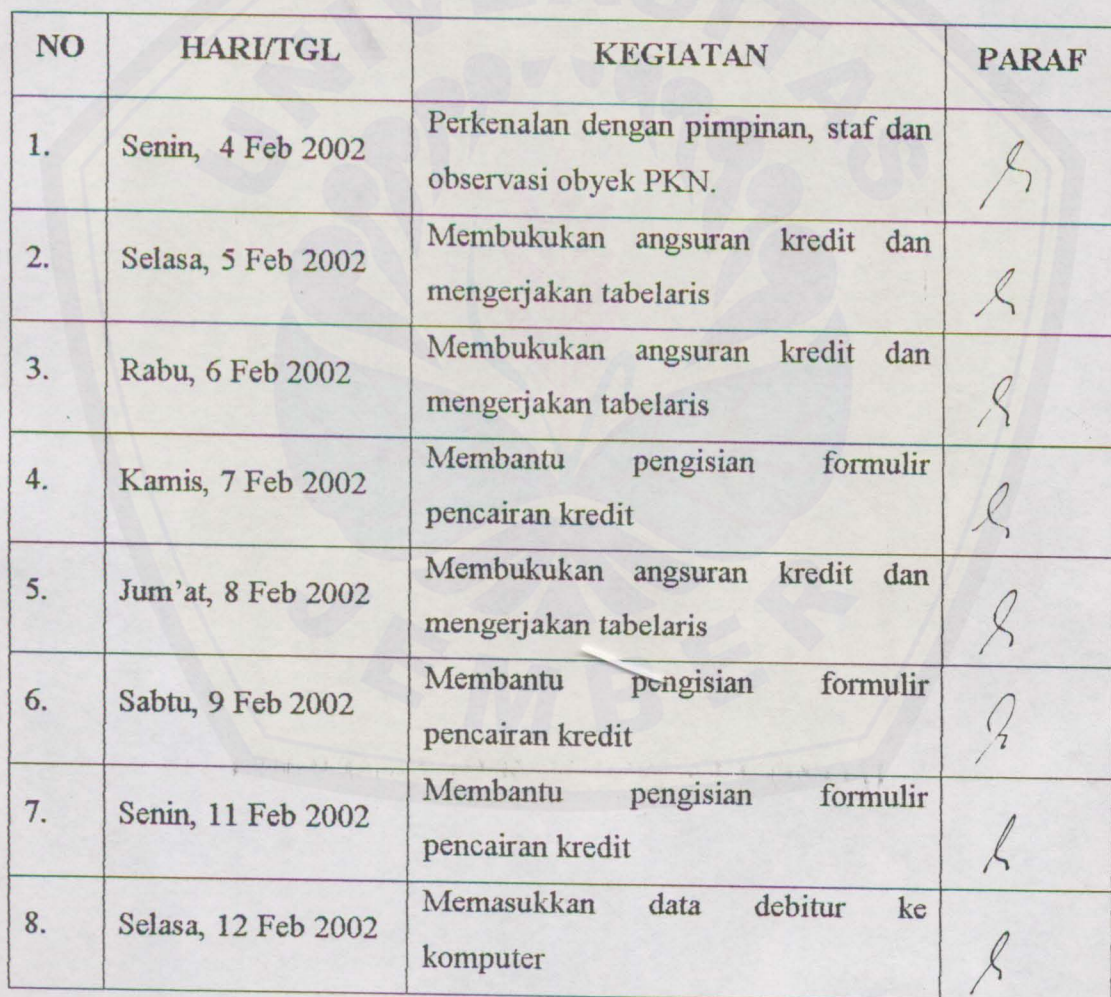 NO HARI/TGL KEGIATAN PARAF
1. Senin, 4 Feb 2002 Perkenalan dengan pimpinan, staf dan
observasi obyek PKN.
2. Selasa, 5 Feb 2002 Membukukan angsuran kredit dan
mengerjakan tabelaris
3. Rabu, 6 Feb 2002 Membukukan angsuran kredit dan
mengerjakan tabelaris
4. Kamis, 7 Feb 2002 Membantu pengisian formulir
pencairan kredit
5. Jum'at, 8 Feb 2002 Membukukan angsuran kredit dan
mengerjakan tabelaris
6. Sabtu, 9 Feb 2002 Membantu pengisian formulir
pencairan kredit
7. Senin, 11 Feb 2002 Membantu pengisian formulir
pencairan kredit
8. Selasa, 12 Feb 2002 Memasukkan data debitur ke
komputer
UNIVERSITAS
JEMBER